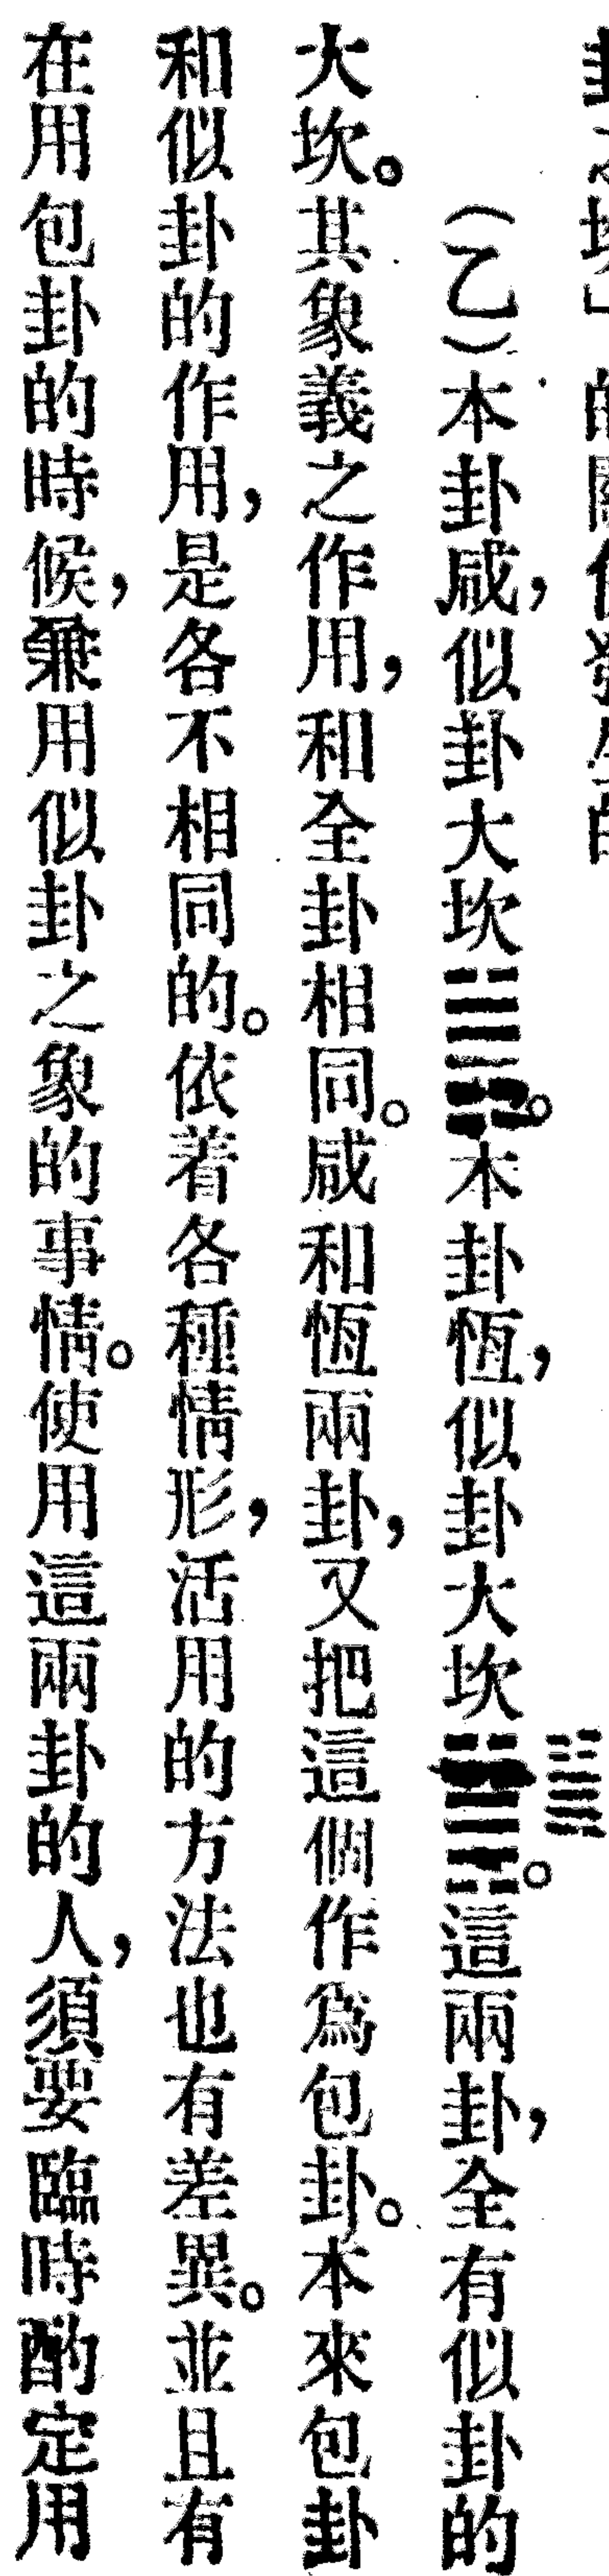 （乙）本卦咸，似卦大坎。本卦恆，似卦大坎。這兩卦，全有似卦的
大坎。其象義之作用，和全卦相同。咸和恆兩卦，又把這個作爲包卦。本來包卦
和似卦的作用，是各不相同的。依着各種情形，活用的方法也有差異。並且有
在用包卦的時候，兼用似卦之象的事情。使用這兩卦的人，須要臨時酌定用